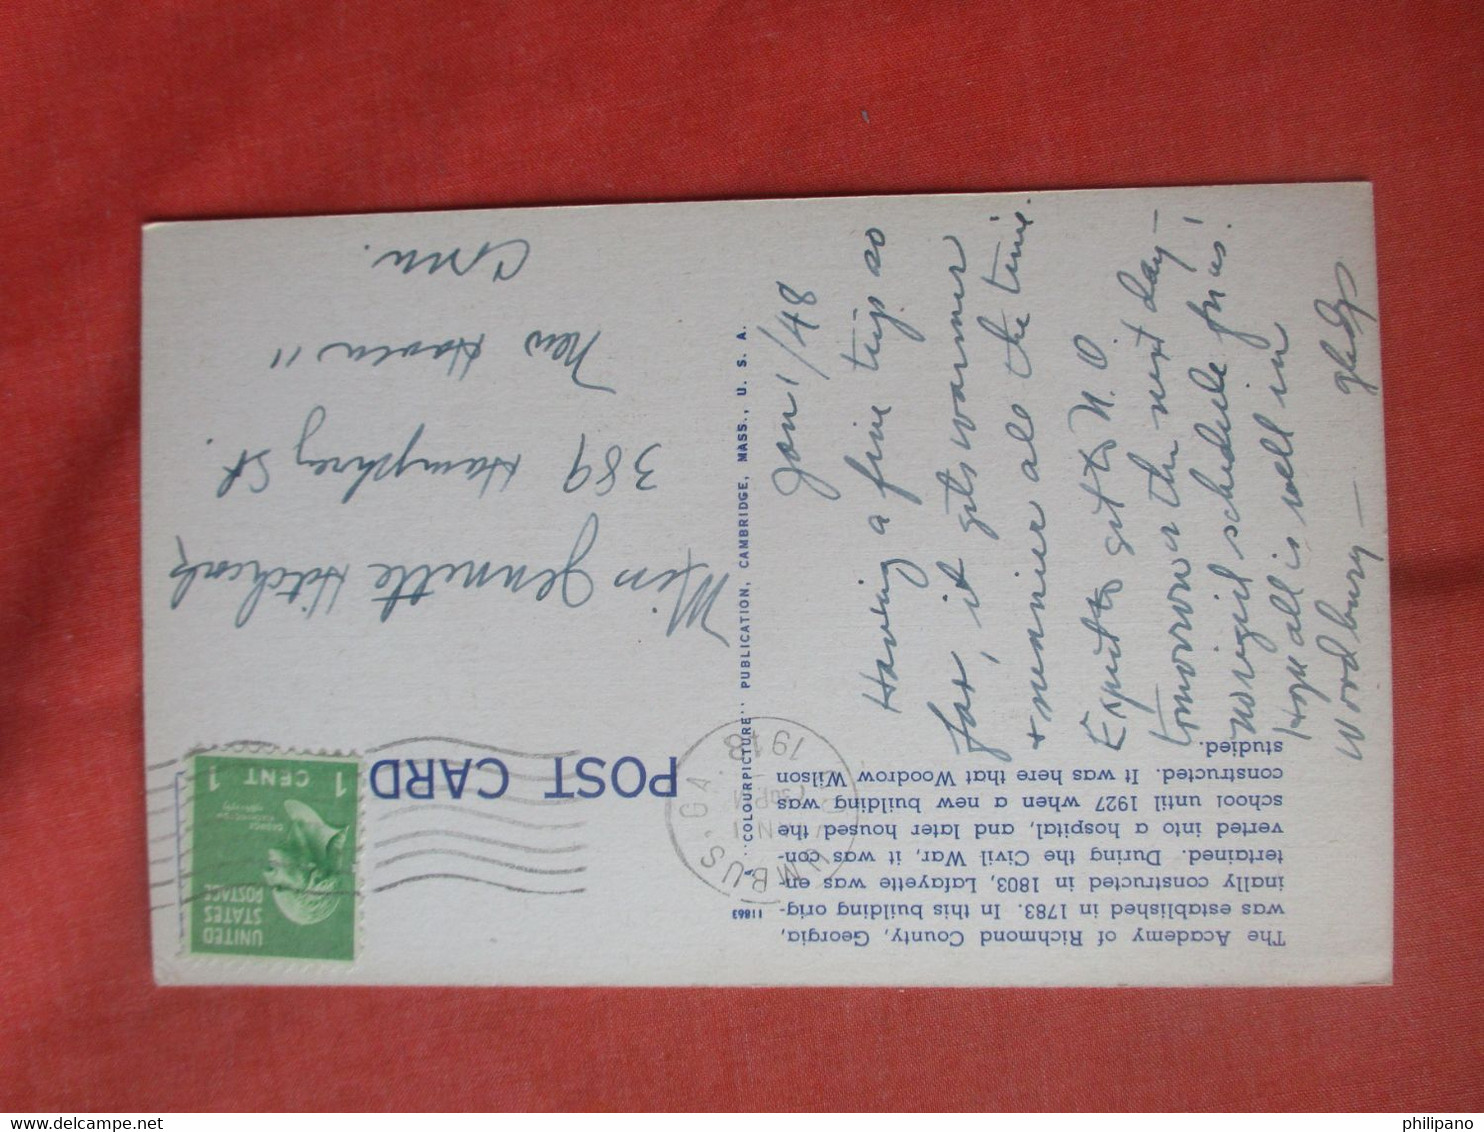 The Academy of Richmond County, Georgia,
was established in 1783. In this building orig-
inally constructed in 1803, Lafayette was en-
tertained. During the Civil War, it was con-
verted into a hospital, and later housed the
school until 1927 when a new building was
constructed. It was here that Woodrow Wilson
studied.
11863
"COLOURPICTURE" PUBLICATION, CAMBRIDGE, MASS., U. S. A.
POST CARD
UNITED
STATES
POSTAGE
GEORGE
WASHINGTON
1 CENT 1
MBUS, GA.
JAN 1
30 PM
1948
Jan 1/48
Having a fine trip so
far, it gets warmer
+ sunnier all the time.
Expect to get to N.O.
tomorrow or the next day —
no rigid schedule for us!
Hope all is well in
Woodbury — Gladys
Miss Jennette Hitchcock
389 Humphrey St.
New Haven 11
Conn.
philipano